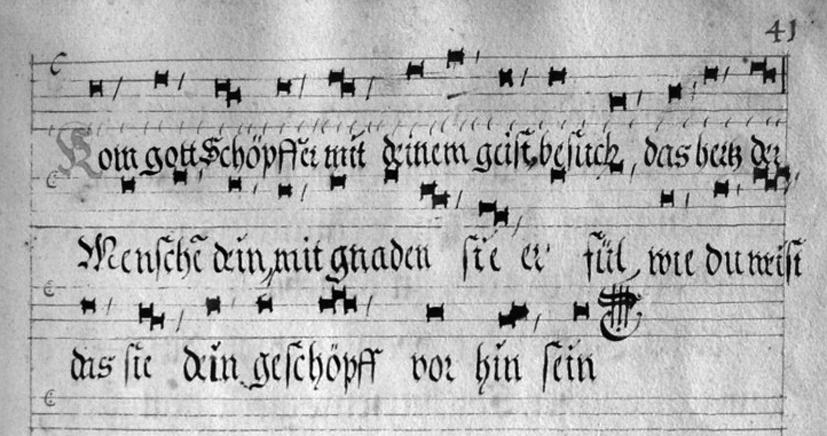 41
Kom gott Schöpffer mit deinem geist, besuch, das hertz der
Menschē dein, mit gnaden sie er fül, wie du weist
das sie dein geschöpff vor hin sein